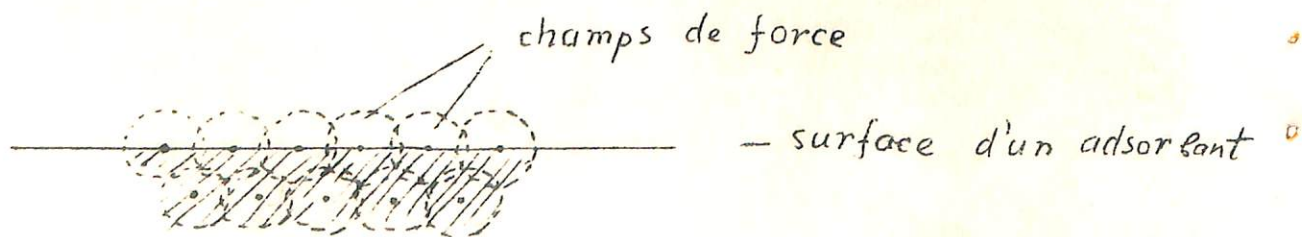 champs de force
– surface d'un adsorbant